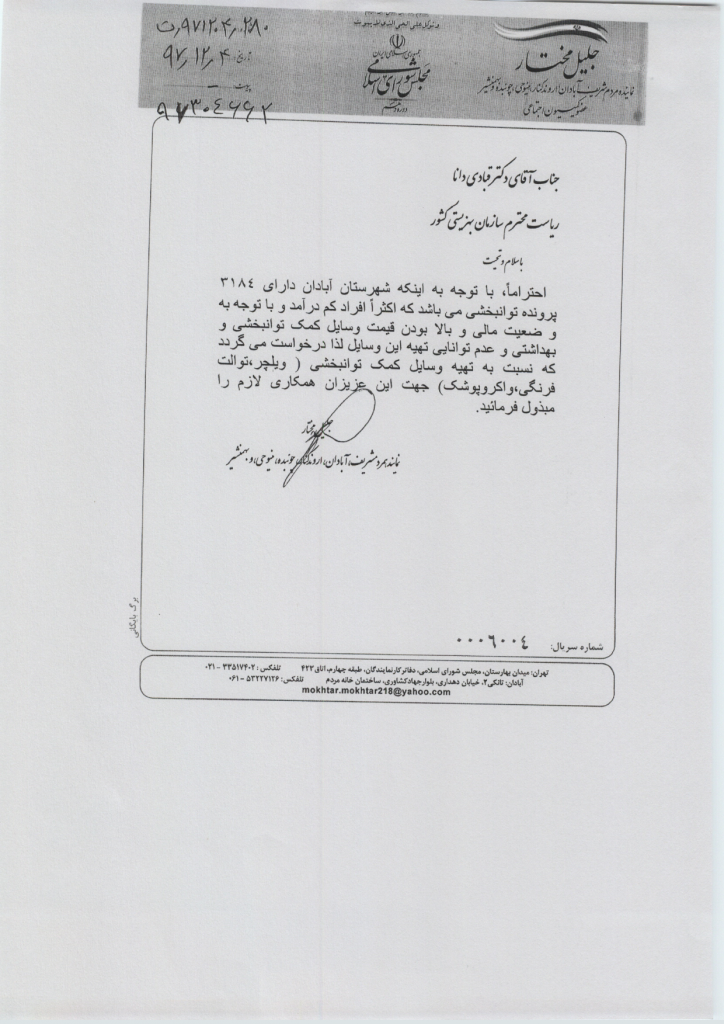 و توکل علی الحی الذی لا یموت
جمهوری اسلامی ایران
مجلس شورای اسلامی
جلیل مختار
نماینده مردم شریف آبادان، اروندکنار، مینوحی، چوئبده و بهمنشیر
عضو کمیسیون اجتماعی
تاریخ: ۹۷/۱۲/۴
پیوست
۹۷۳۰۴۶۶۲
جناب آقای دکتر قبادی دانا
ریاست محترم سازمان بهزیستی کشور
با سلام و تحیت
احتراماً، با توجه به اینکه شهرستان آبادان دارای ۳۱۸٤
پرونده توانبخشی می باشد که اکثراً افراد کم درآمد و با توجه به
و ضعیت مالی و بالا بودن قیمت وسایل کمک توانبخشی و
بهداشتی و عدم توانایی تهیه این وسایل لذا درخواست می گردد
که نسبت به تهیه وسایل کمک توانبخشی ( ویلچر،توالت
فرنگی،واکروپوشک) جهت این عزیزان همکاری لازم را
مبذول فرمائید.
جلیل مختار
نماینده مردم شریف، آبادان، اروندکنار، چوئبده، مینوحی، و بهمنشیر
برگ بایگانی
شماره سریال: ۰۰۰۶۰۰٤
تهران: میدان بهارستان، مجلس شورای اسلامی، دفاتر کار نمایندگان، طبقه چهارم، اتاق ۴۲۳ تلفکس: ۳۳۵۱۷۴۰۲ - ۰۲۱
آبادان: تانکی۲، خیابان دهداری، بلوار جهادکشاورزی، ساختمان خانه مردم تلفکس: ۵۳۲۲۷۱۲۶ - ۰۶۱
mokhtar.mokhtar218@yahoo.com